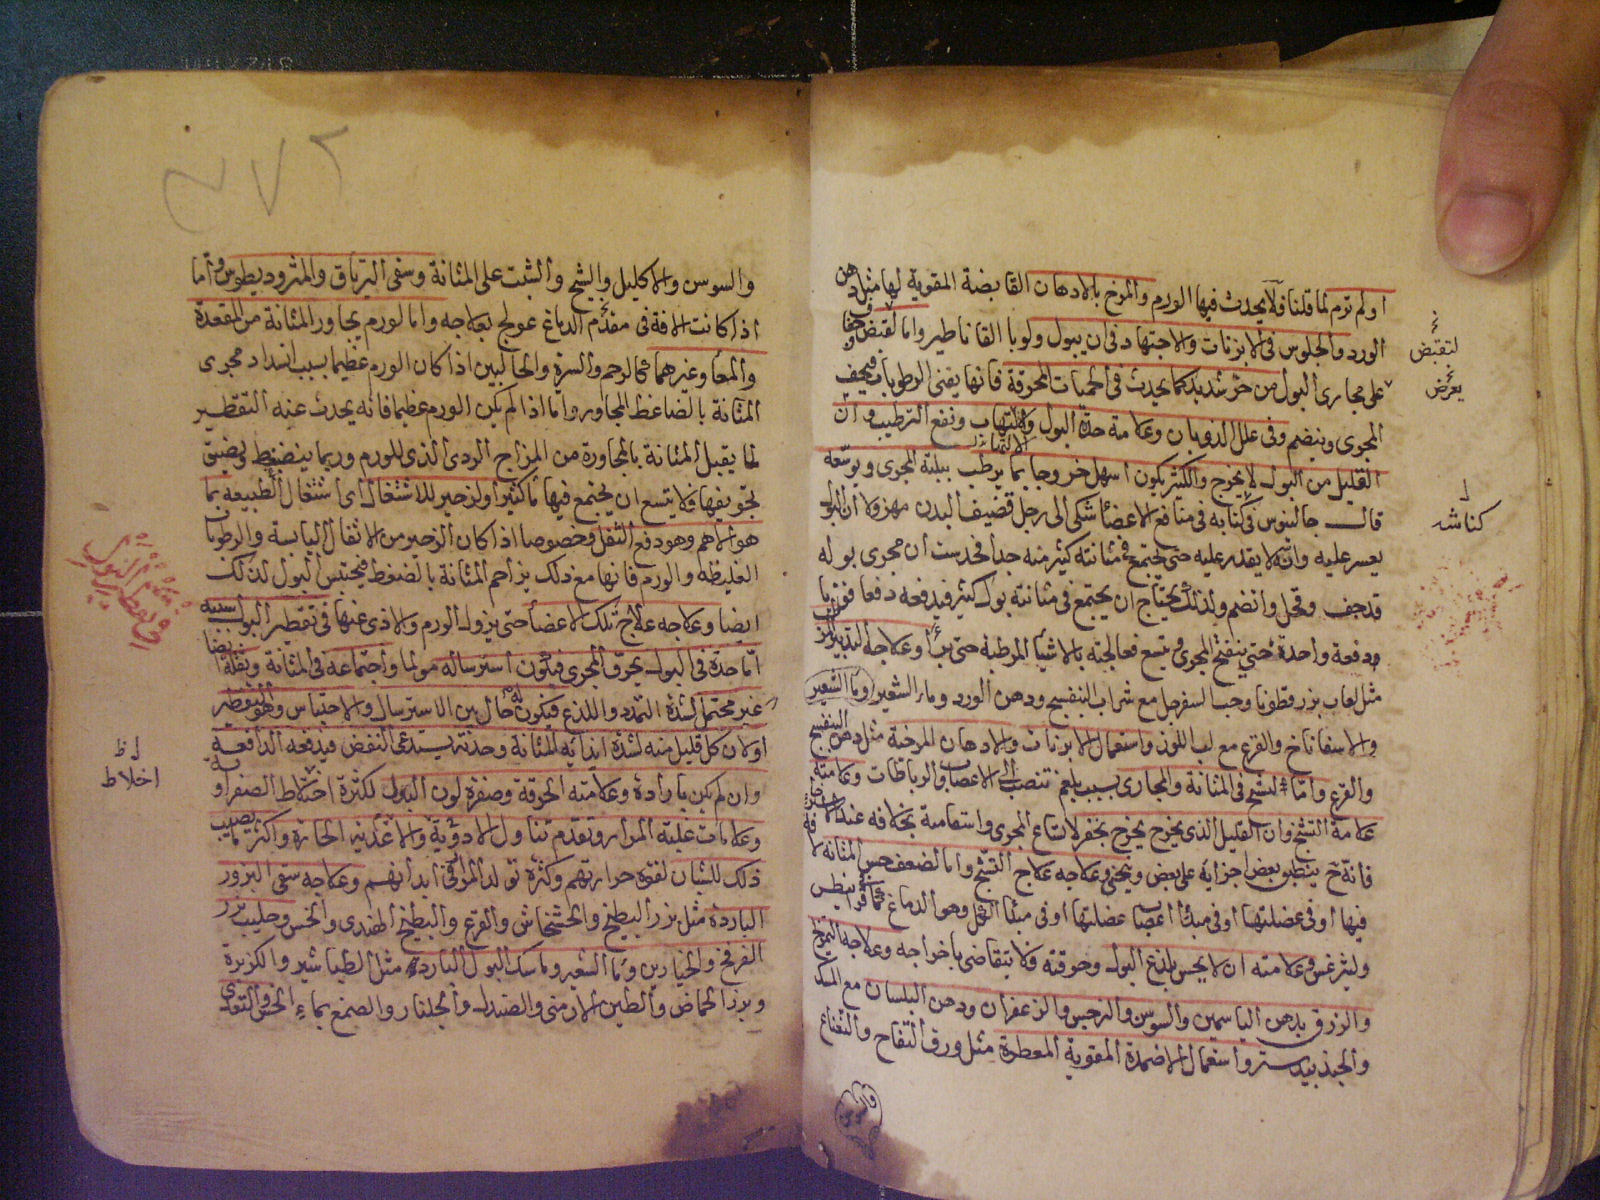 او لم ترم لما قلنا فلا يحدث فيها الورم والمرخ بالادهان القابضة المقوية لها مثل دهن
الورد والجلوس فى الابزنات والاجتهاد فى ان يبول ولو بالقاثاطير واما لتقبض
على مجارى البول من حر شديد كما يحدث فى الحميات المحرقة فانها يفنى الرطوبات فيجف
المجرى وينضم وفى علل الذوبان وعلامة حدة البول والالتهاب ونفع الترطيب وان
القليل من البول لا يخرج والكثير يكون اسهل خروجا بما يرطب ببلته المجرى ويوسعه
قال جالينوس فى كتابه فى منافع الاعضا شكى الى رجل قضيف البدن مهزولا ان البول
يعسر عليه وانه لا يقدر عليه حتى يجتمع فى مثانته كثير منه جدا فحدست ان مجرى بوله
قد جف وقحل وانضم ولذلك يحتاج ان يجتمع فى مثانته بول كثير فيدفعه دفعا
دفعة واحدة حتى ينفتح المجرى ويتسع فعالجته بالاشيا المرطبة حتى برأ وعلاجه التدبير
مثل لعاب بزرقطونا وحب السفرجل مع شراب البنفسج ودهن الورد وماء الشعير
والاسفاناخ والقرع مع لب اللوز واستعمال الابزنات والادهان المرخية مثل دهن البنفسج
والقرع واما لتشنج فى المثانة والمجارى بسبب بلغم تنصب الى الاعصاب والرباطات وعلامته
علامة التشنج وان القليل الذى يخرج يخرج بحفز لاتساع المجرى واستقامته بخلافه عند
فانه ح ينطبق بعض اجزايه على بعض وينحنى وعلاجه علاج التشنج واما لضعف حس المثانة
فيها او فى عضلتها او فى مبدأ اعصاب عضلتها او فى مبدأ الكل وهو الدماغ كما فى قرانيطس
وليثرغس وعلامته ان لا يحس بلذع البول وحرقته فلا يتقاضى باخراجه وعلاجه التمريخ
والزرق بدهن الياسمين والسوسن والنرجس والزعفران ودهن البلسان مع المسك
والجندبيدستر واستعمال الاضمدة المقوية المعطرة مثل ورق التفاح والنعناع
لتقبض
يعرض
كناشه
والسوسن والاكليل والشيح والشبت على المثانة وسقى الترياق والمثروديطوس واما
اذا كانت الافة فى مقدم الدماغ عولج بعلاجه واما لورم يجاور المثانة من المقعدة
والمعا وغيرهما كالرحم والسرة والحالبين اذا كان الورم عظيما بسبب انسداد مجرى
المثانة بالضاغط المجاور واما اذا لم يكن الورم عظيما فانه يحدث عنه التقطير
لما يقبل المثانة بالمجاورة من المزاج الردى الذى للورم وربما ينضغط فيضيق
تجويفها فلا يتسع ان يجتمع فيها ما كثير او لزحير للاشتغال اى اشتغال الطبيعة بما
هو الاهم وهو دفع الثفل وخصوصا اذا كان الزحير من الاثفال اليابسة والرطوبات
الغليظة والورم فانها مع ذلك يزاحم المثانة بالضغط فيحتبس البول لذلك
ايضا وعلاجه علاج تلك الاعضا حتى يزول الورم والاذى عنها فى تقطير البول سببه
اما حدة فى البول يحرق المجرى فيكون استرساله مولما واجتماعه فى المثانة وثقله ايضا
غير محتمل لشدة التمدد واللذع فيكون له حال بين الاسترسال والاحتباس وهو التقطير
او لان كل قليل منه لشدة ايذائه للمثانة وحدته يستدعى النفض فيدفعه الدافعة
وان لم يكن بارادة وعلامته الحرقة وصفرة لون البول لكثرة اختلاط الصفرا
وعلامات غلبة المرار وتقدم تناول الادوية والاغذية الحارة واكثر ما يصيب
ذلك للشبان لقوة حرارتهم وكثرة تولد المرار فى ابدانهم وعلاجه سقى البزور
الباردة مثل بزر البطيخ والخشخاش والقرع والبطيخ الهندى والخس وحليب بزر
الفرفخ والخيارين وما الشعير وماسك البول البارد مثل الطباشير والكزبرة
وبزر الحماض والطين الارمنى والصندل والجلنار والصمغ بماء الخس
فى تقطير البول
اخلاط
٤٧٢